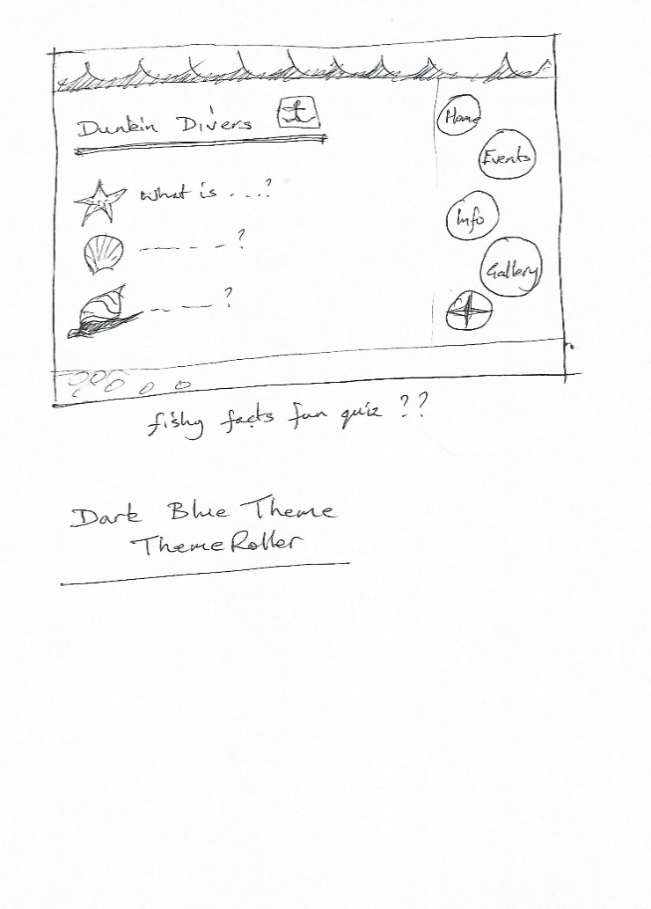 Dunkin Divers
what is - - - ?
- - - - ?
- - - - ?
Home
Events
Info
Gallery
fishy facts fun quiz ??
Dark Blue Theme
ThemeRoller